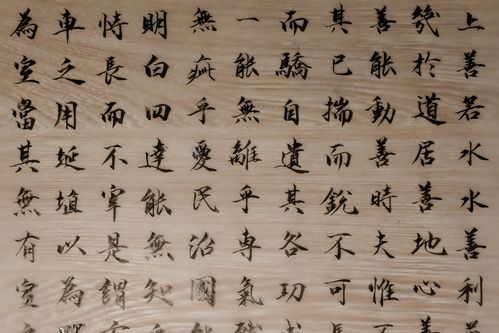 上善若水水善利
幾於道居善地心
善能動善時夫惟
其已揣而銳不可
而驕自遺其各功
一能無離乎專氣
無疵乎愛民治國
明白四達能無知
恃長而不宰是謂
車之用延埴以為
為室當其無有室